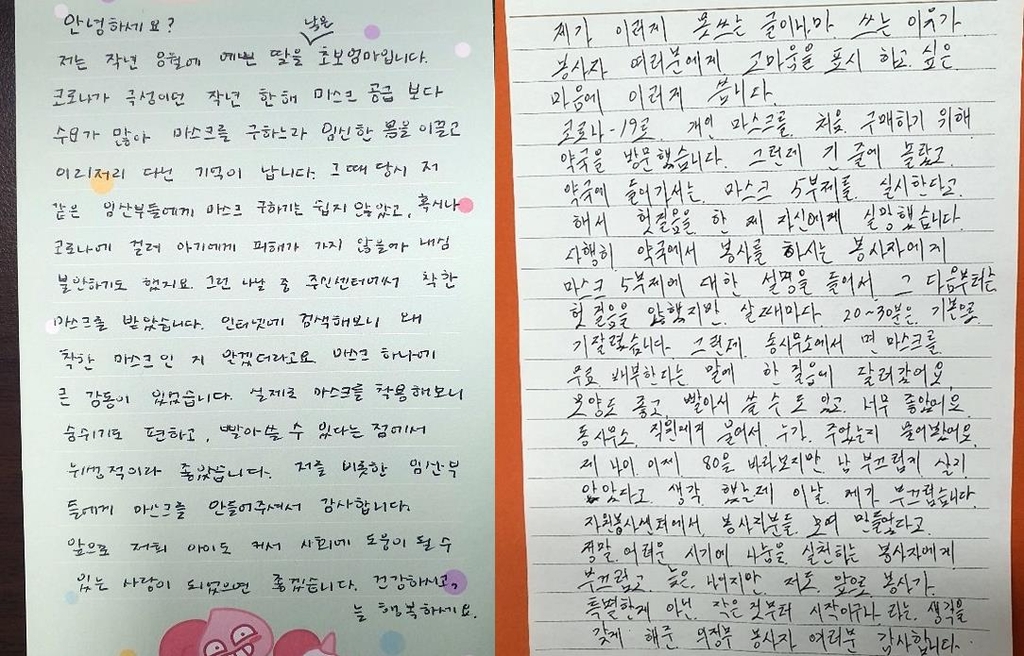 안녕하세요?
저는 작년 8월에 예쁜 딸을 낳은 초보엄마입니다.
코로나가 극성이던 작년 한해 마스크 공급 보다
수요가 많아 마스크를 구하느라 임신한 몸을 이끌고
이리저리 다닌 기억이 납니다. 그 때 당시 저
같은 임산부들에게 마스크 구하기는 쉽지 않았고, 혹시나
코로나에 걸려 아기에게 피해가 가지 않을까 내심
불안하기도 했지요. 그런 나날 중 주민센터에서 착한
마스크를 받았습니다. 인터넷에 검색해보니 왜
착한 마스크인 지 알겠더라고요. 마스크 하나에
큰 감동이 있었습니다. 실제로 마스크를 착용해보니
숨쉬기도 편하고, 빨아쓸 수 있다는 점에서
위생적이라 좋았습니다. 저를 비롯한 임산부
들에게 마스크를 만들어주셔서 감사합니다.
앞으로 저희 아이도 커서 사회에 도움이 될 수
있는 사람이 되었으면 좋겠습니다. 건강하시고,
늘 행복하세요.
제가 이러게 못쓰는 글이나마 쓰는 이유가
봉사자 여러분에게 고마움을 표시 하고 싶은
마음에 이러게 씁니다.
코로나-19로 개인 마스크를 처음 구매하기 위해
약국을 방문했습니다. 그런데 긴 줄에 놀랐고
약국에 들어가서는 마스크 5부제를 실시한다고
해서 헛걸음을 한 제 자신에게 실망했습니다
사행히 약국에서 봉사를 하시는 봉사자에게
마스크 5부제에 대한 설명을 들어서 그 다음부터는
헛걸음을 안했지만 살때마다 20~30분은 기본으로
기달렸습니다. 그런데 동사무소에서 면 마스크를
무료 배부한다는 말에 한 걸음에 달려갔어요.
모양도 좋고, 빨아서 쓸 수 도 있고 너무 좋았어요
동사무소 직원에게 물어서 누가 주었는지 물어봤어요
제 나이 이제 80을 바라보지만 남 부끄럽게 살지
않았다고 생각 했는데 이날 제가 부끄럽습니다
자원봉사센터에서 봉사자분들 모여 만들었다고
정말 어려운 시기에 나눔을 실천하는 봉사자에게
부끄럽고 늦은 나이지만 저도 앞으로 봉사가
특별한게 아닌 작은것부터 시작이구나 라는 생각을
갖게 해준 의정부 봉사자 여러분 감사합니다.